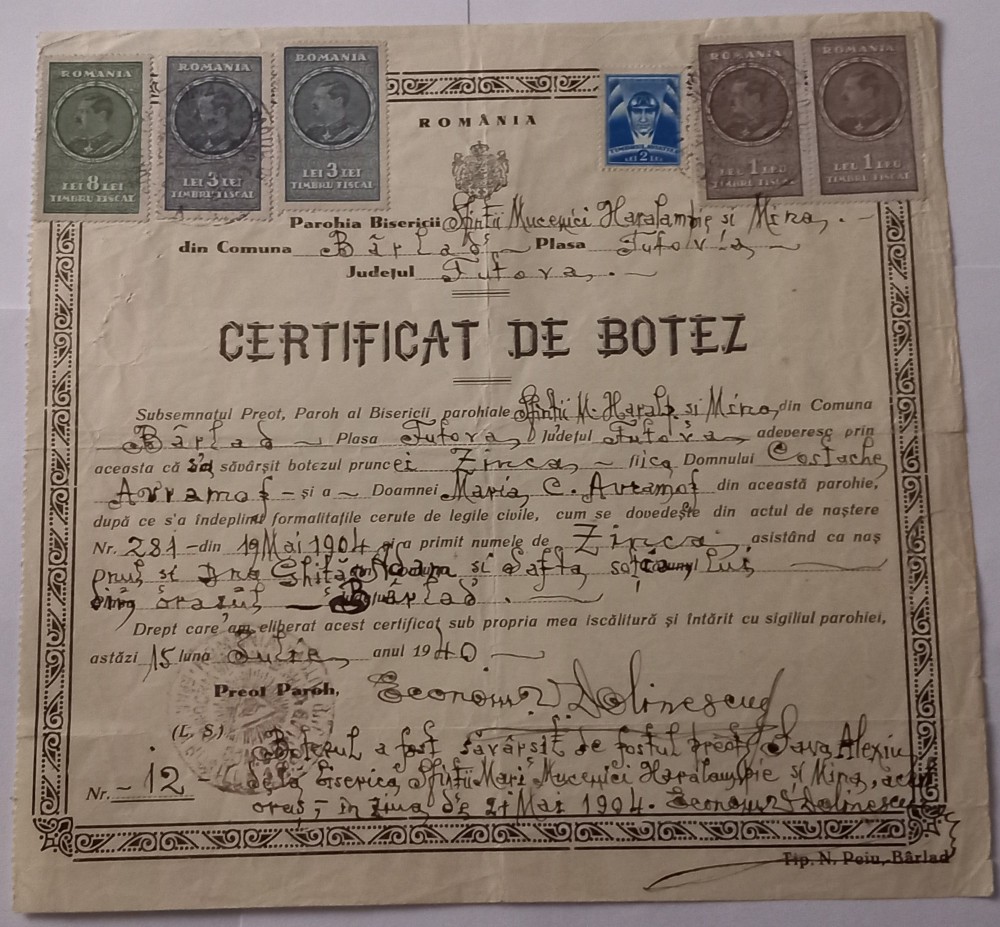 ROMANIA
LEI 8 LEI
TIMBRU FISCAL
ROMANIA
LEI 3 LEI
TIMBRU FISCAL
ROMANIA
LEI 3 LEI
TIMBRU FISCAL
LEI 2 LEI
ROMANIA
LEU 1 LEU
TIMBRU FISCAL
ROMANIA
LEU 1 LEU
TIMBRU FISCAL
ROMÂNIA
Parohia Bisericii Sfinții Mucenici Haralambie și Mina,
din Comuna Bârlad Plasa Tutova
Județul Tutova.
CERTIFICAT DE BOTEZ
Subsemnatul Preot, Paroh al Bisericii parohiale Sfinții M. Haral. și Mina, din Comuna
Bârlad Plasa Tutova, Județul Tutova, adeveresc prin
aceasta că s'a săvârșit botezul pruncei Zinca fiica Domnului Costache
Avramof și a Doamnei Maria C. Avramof din această parohie,
după ce s'a îndeplinit formalitățile cerute de legile civile, cum se dovedește din actul de naștere
Nr. 281 din 19 Mai 1904 și a primit numele de Zinca, asistând ca naș
și Ghiță și Safta, soția lui,
din orașul Bârlad.
Drept care am eliberat acest certificat sub propria mea iscălitură și întărit cu sigiliul parohiei,
astăzi 15 luna Iulie, anul 1940.
Preot Paroh, Econom V. Dolinescu
(L. S.) Botezul a fost săvârșit de fostul preot Sava Alexiu
dela biserica Sfinții Mari Mucenici Haralampie și Mina,
Nr. 12 oraș, în ziua de 21 Mai 1904. Econom V. Dolinescu
Tip. N. Peiu, Bârlad